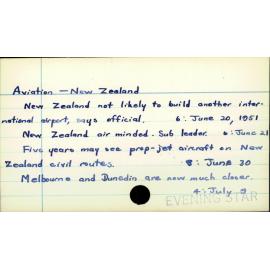 Aviation — New Zealand
New Zealand not likely to build another inter-
national airport, says official. 6: June 20, 1951
New Zealand air minded. Sub leader. 6: June 21
Five years may see prop-jet aircraft on New
Zealand civil routes. 8: June 30
Melbourne and Dunedin are now much closer.
4: July 9
EVENING STAR